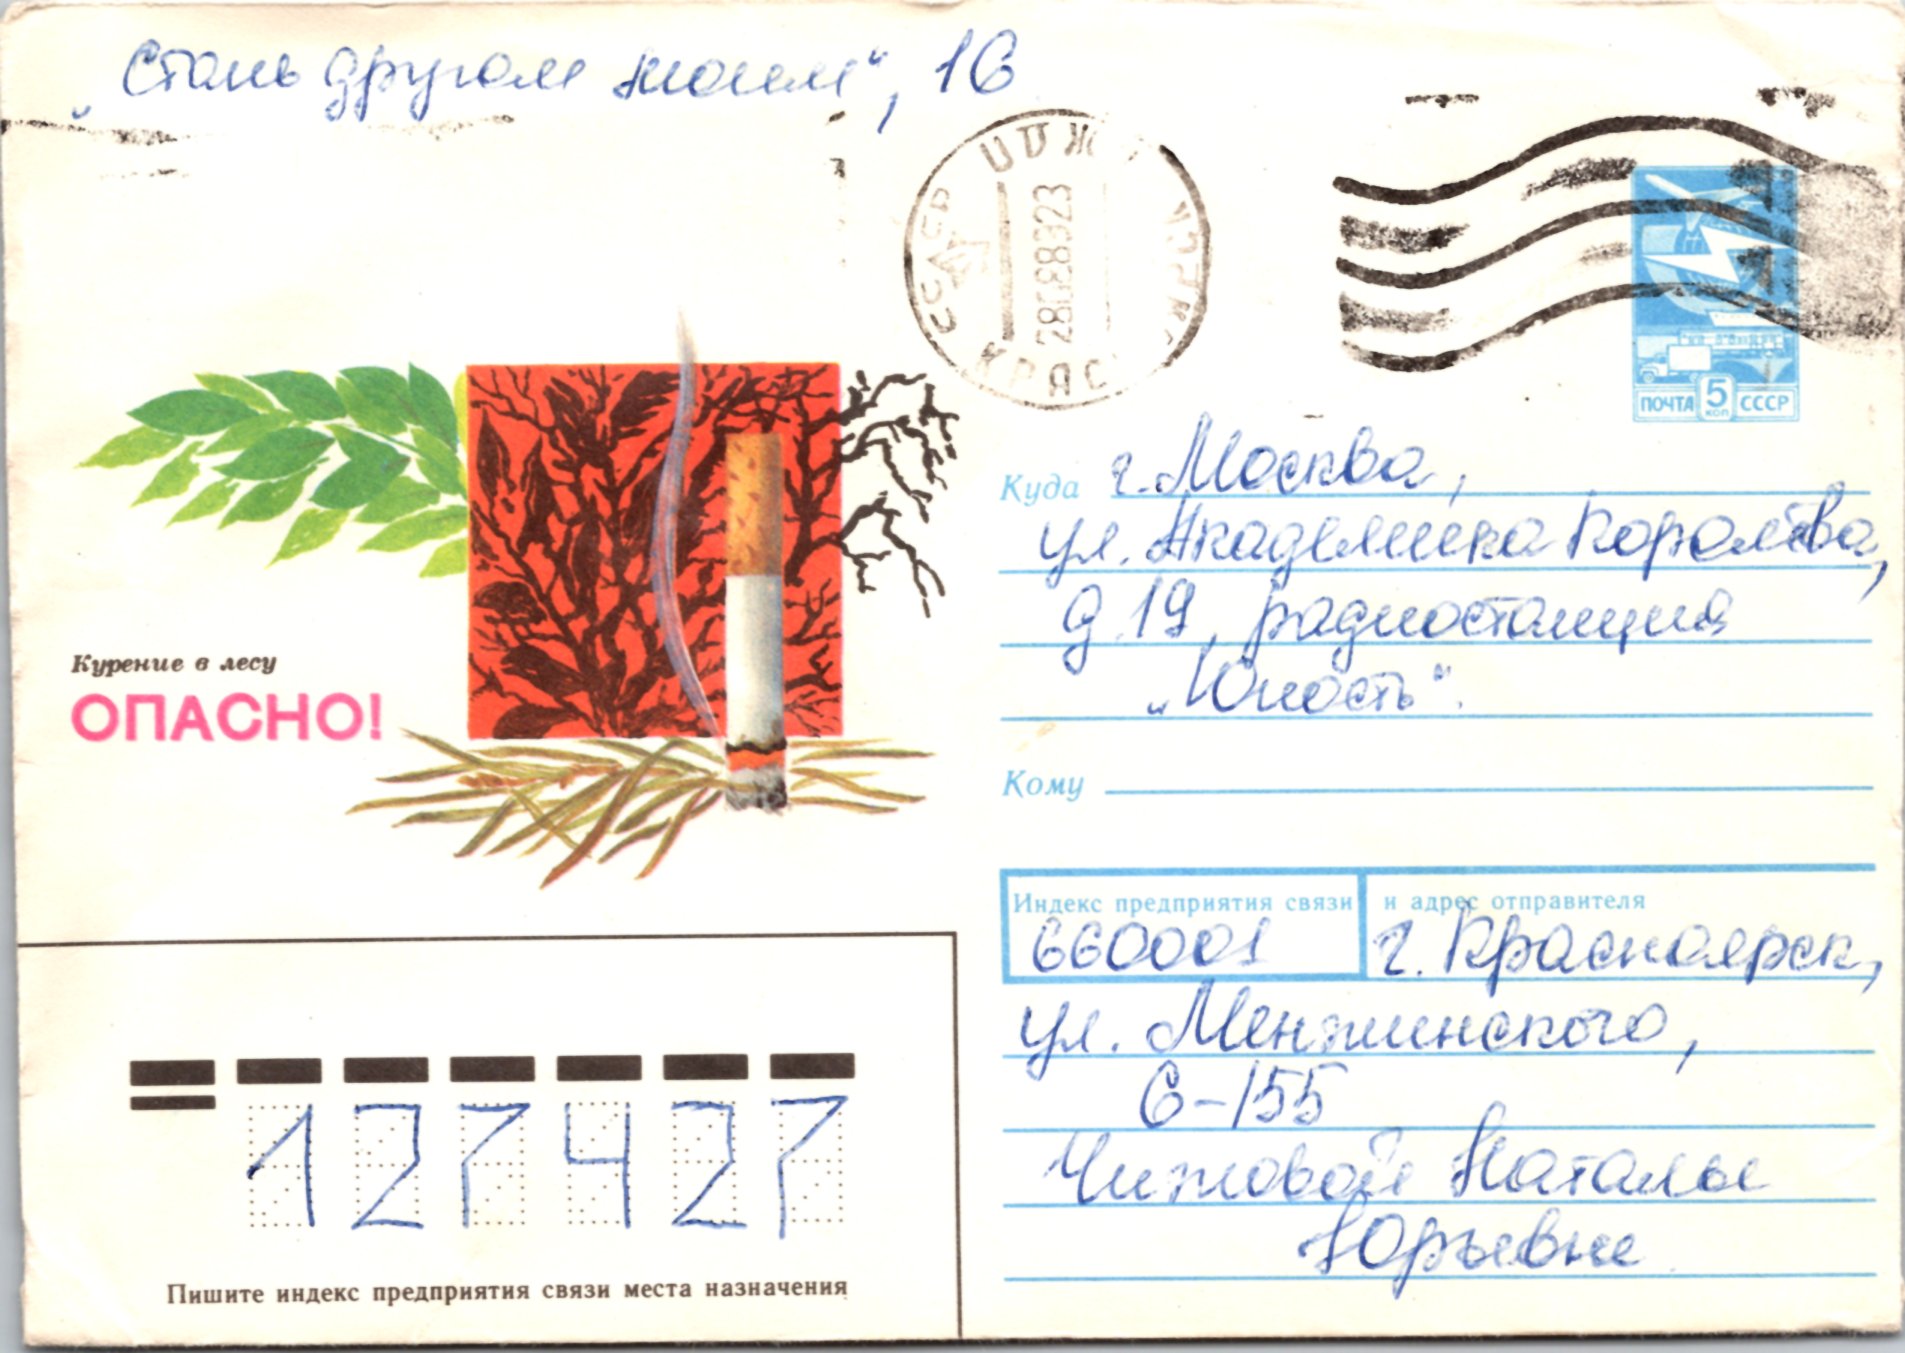 „Стань другом моим“, 16
СССР
КРАС
ПОЧТА 5 КОП СССР
Куда г. Москва,
ул. Академика Королёва,
д. 19, радиостанция
„Юность“.
Курение в лесу
ОПАСНО!
Кому
Индекс предприятия связи и адрес отправителя
660001 г. Красноярск,
ул. Менжинского,
6-155
Чижовой Наталье
Юрьевне
127427
Пишите индекс предприятия связи места назначения